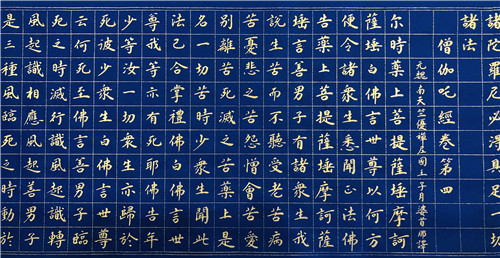 陀羅尼必淨具足一切
諸法
僧伽吒經卷第四
元魏南天竺優禪尼國王子月婆首那譯
尔時藥上菩提薩埵摩訶
薩埵白佛言世尊以何方
便令諸衆生悉聞正法佛
告藥上菩提薩埵摩訶薩
埵言善男子有諸衆生
說生苦而不聽受老苦病
苦憂悲之苦怨憎會苦愛
別離苦死滅之苦藥上是
名一切苦時少衆生聞此
法已合掌禮佛白佛言世
尊我等亦有死耶佛告言
少汝等一切衆生亦歸於
死彼少衆生白佛言世尊
云何死佛言善男子臨
死之時滅行識風起識轉
風起識相應風善男子
是三種風臨死之時動於